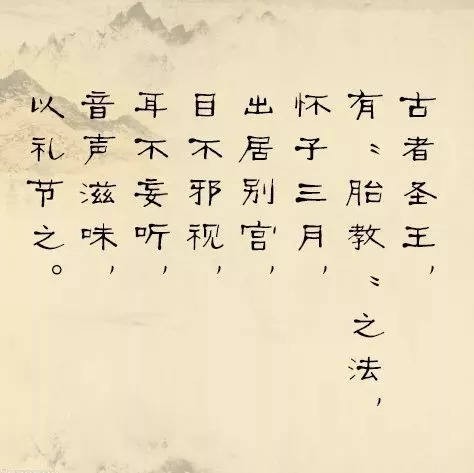 古者圣王，
有“胎教”之法，
怀子三月，
出居别宫，
目不邪视，
耳不妄听，
音声滋味，
以礼节之。